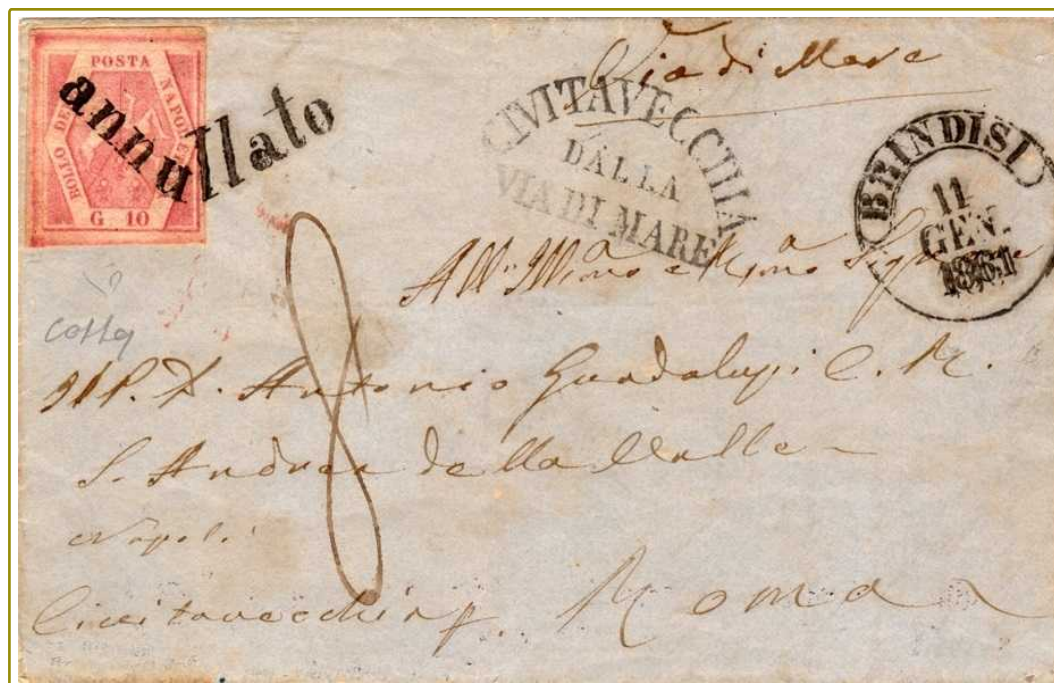 BOLLO DELLA POSTA NAPOLETANA
G. 10
annullato
Via di Mare
CIVITAVECCHIA
DALLA
VIA DI MARE
BRINDISI
11
GEN.
1861
8
All'Ill.mo e R.mo Signore
Il P. D. Antonio Guadalupi C. R.
S. Andrea della Valle
Napoli
Civitavecchia p. Roma